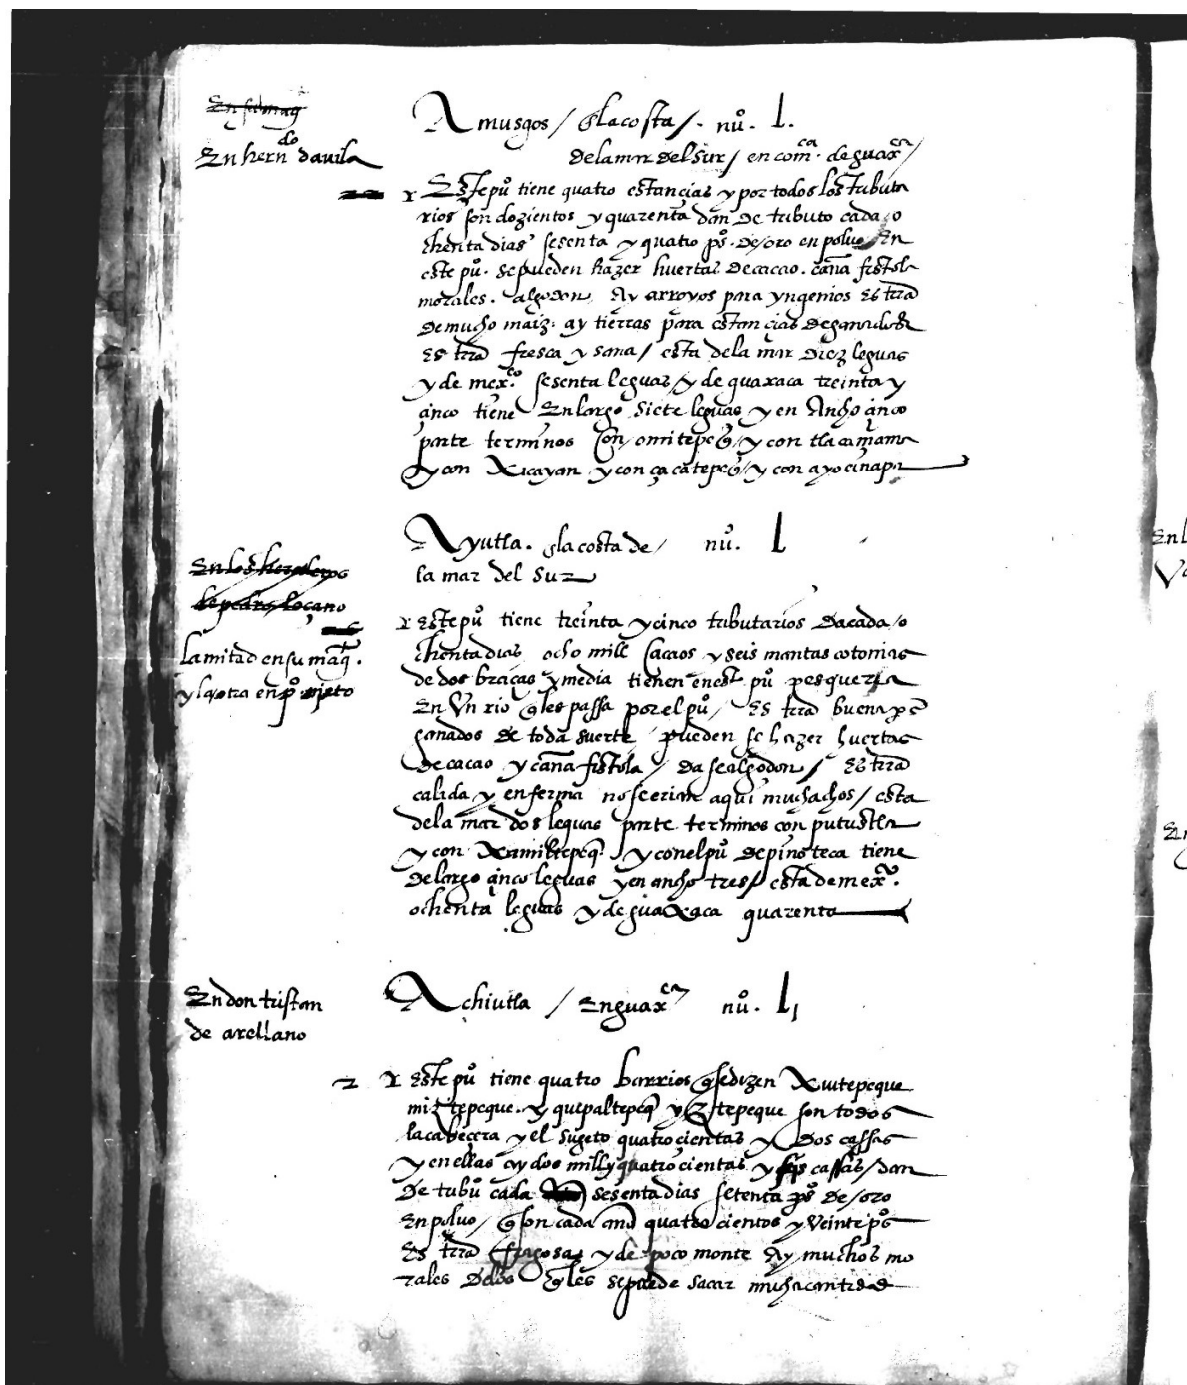 En su mag
En hern^do davila
Amusgos / q la costa /. nu^o. L.
dela mar del sur / en com^ca. de guax^ca /
Este pu^o tiene quatro estançias y por todos los tributa
rios son dozientos y quarenta dan de tributo cada o
chenta dias sesenta y quatro p^os. de / oro en polvo En
este pu^o. se pueden hazer huertas de cacao. caña fistola
morales. algodon Ay arroyos para yngenios Es trra
de mucho maiz. ay tierras para estançias de ganados
Es trra fresca y sana / esta de la mar diez leguas
y de mex^co. sesenta leguas / y de guaxaca treinta y
çinco tiene En largo siete leguas y en Ancho çinco
parte terminos con ometepeq / y con tlacamama
y con Xicayan y con çacatepeq / y con ayoçinapa
En los herederos
de pedro loçano
la mitad en su mag^t.
y la otra en p^o nieto
Ayutla. q la costa de / nu^o. L
la mar del Sur
Este pu^o tiene treinta y cinco tributarios Da cada / o
chenta dias ocho mill cacaos y seis mantas cotonias
de dos braças y media tienen en est pu^o pesqueria
En Un rio q les passa por el pu^o / Es trra buena p^a
ganados de toda suerte / pueden se hazer huertas
de cacao y caña fistola / Da se algodon / Es trra
calida y enferma no se crian aqui muchachos / esta
de la mar dos leguas parte terminos con putustla
y con Xamiltepeq. y con el pu^o de pinoteca tiene
De largo çinco leguas y en ancho tres / esta de mex^co.
ochenta leguas y de guaxaca quarenta
En don tristan
de arellano
Achiutla / En guax^ca nu^o. Lj
Este pu^o tiene quatro barrios q se dizen Xiutepeque
miztepeque. y quepaltepeq y Yztepeque son todos
la cabecera y el sugeto quatrocientas y Dos cassas
y en ellas ay dos mill y quatrocientas y seys cassas / Dan
De tribu^o cada sesenta dias setenta p^os De / oro
En polvo / q son cada año quatrocientos y Veinte p^os
Es trra fragosa y de poco monte Ay muchos mo
rales Delos q les se puede sacar mucha cantidad